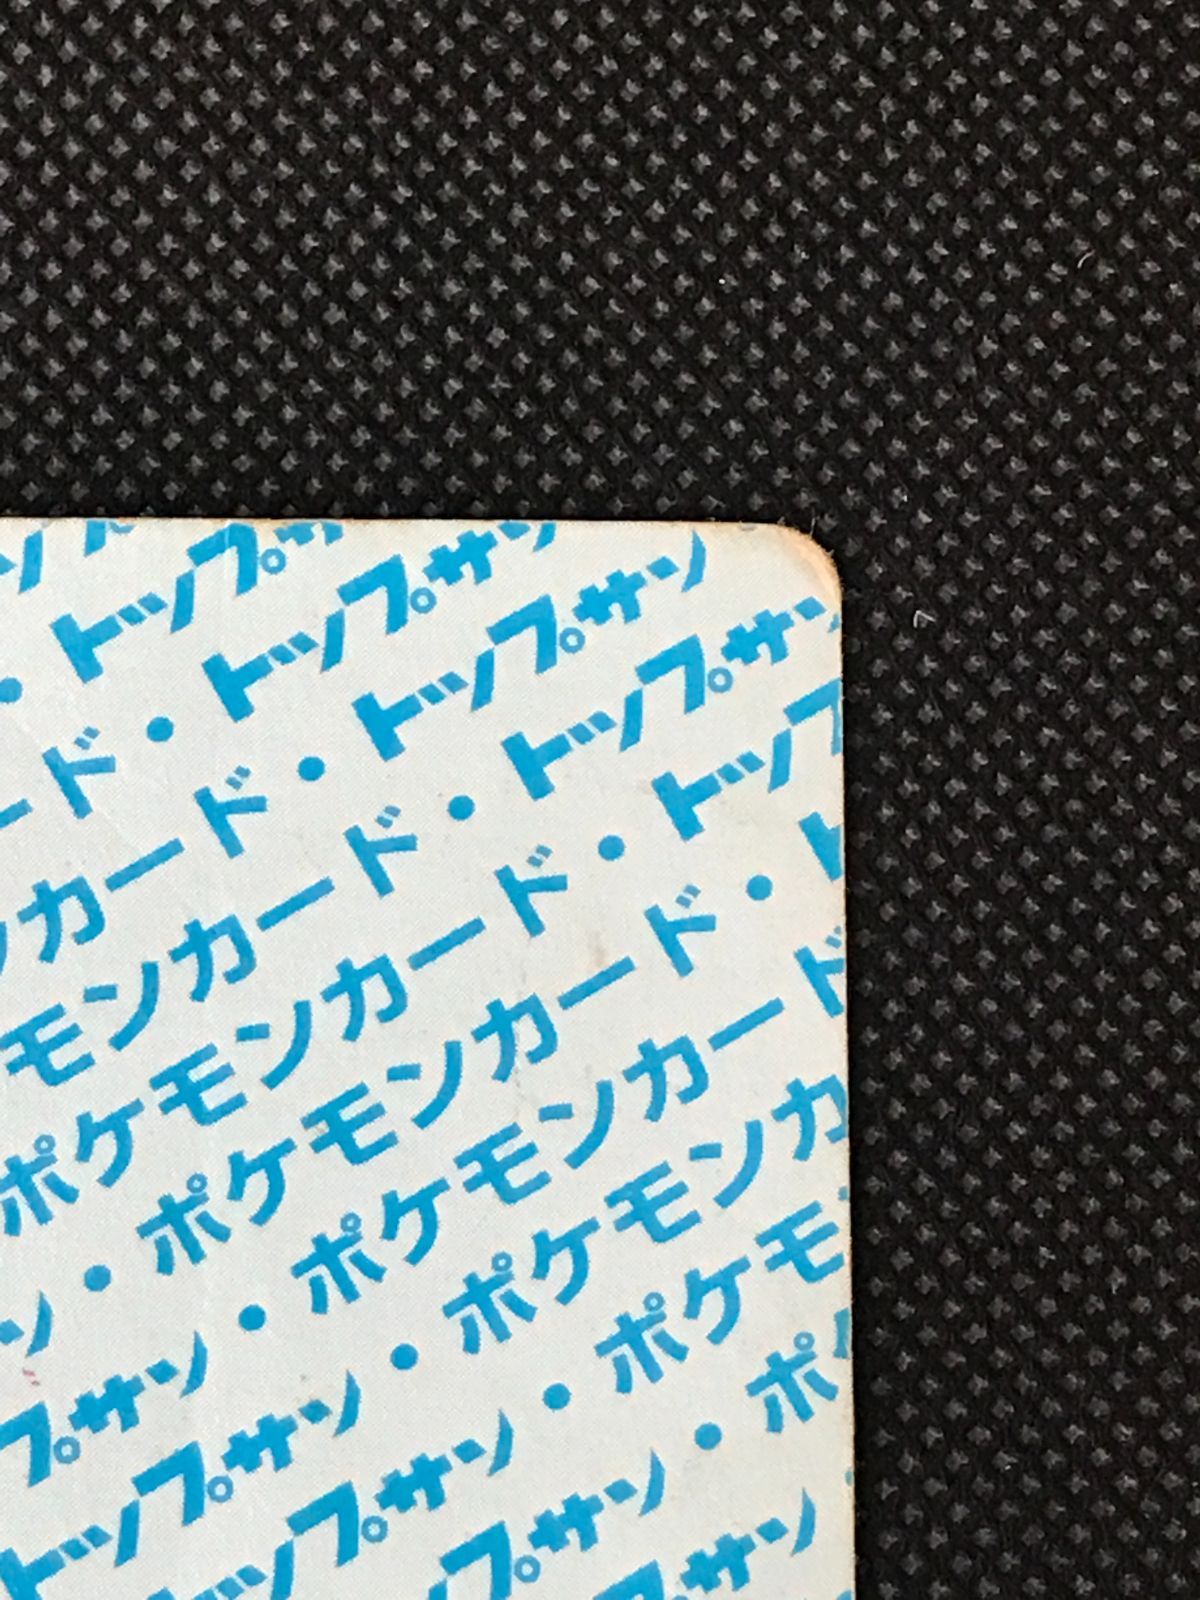 ・トップ
ード・トップサ
ンカード・トップサン
モンカード・トップサン
ポケモンカード・トップ
ン・ポケモンカード・ト
プサン・ポケモンカード
トップサン・ポケモンカ
トップサン・ポケモ
プサン・ポ
サン